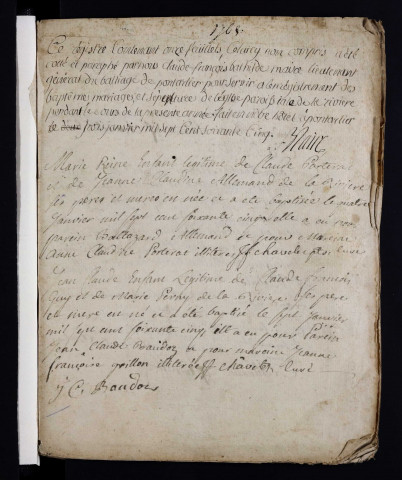 1765
Ce registre contenant onze feuillets celui cy non compris a été
coté et paraphé par nous Claude françois bathide maire lieutenant
général du balliage de pontarlier pour servir a l'enregistrement des
baptemes mariages et sépultures de l'église paroissiale de la riviere
pendant le cours de la presente année fait en notre hôtel a pontarlier
le trois janvier mil sept cent soixante cinq
Maire
Marie Reine Enfant légitime de Claude Porteret
et de Jeanne Claudine Allemand de la Riviere
ses peres et meres est née et a été baptisée le quatre
janvier mil sept cent soixante cinq elle a eu pour
parein Baltazard Allemand et pour Mareine
Anne Claudine Porteret illiteres ff chavelet curé
Jean Claude Enfant Légitime de Claude françois
Guy et de Marie Perny de la Riviere ses pere
et mere est né et a été baptisé le sept janvier
mil sept cent soixante cinq il a eu pour Parein
Jean Claude Baudoz et pour mareine Jeanne
françoise illiterée ff chavelet Curé
J C Baudoz